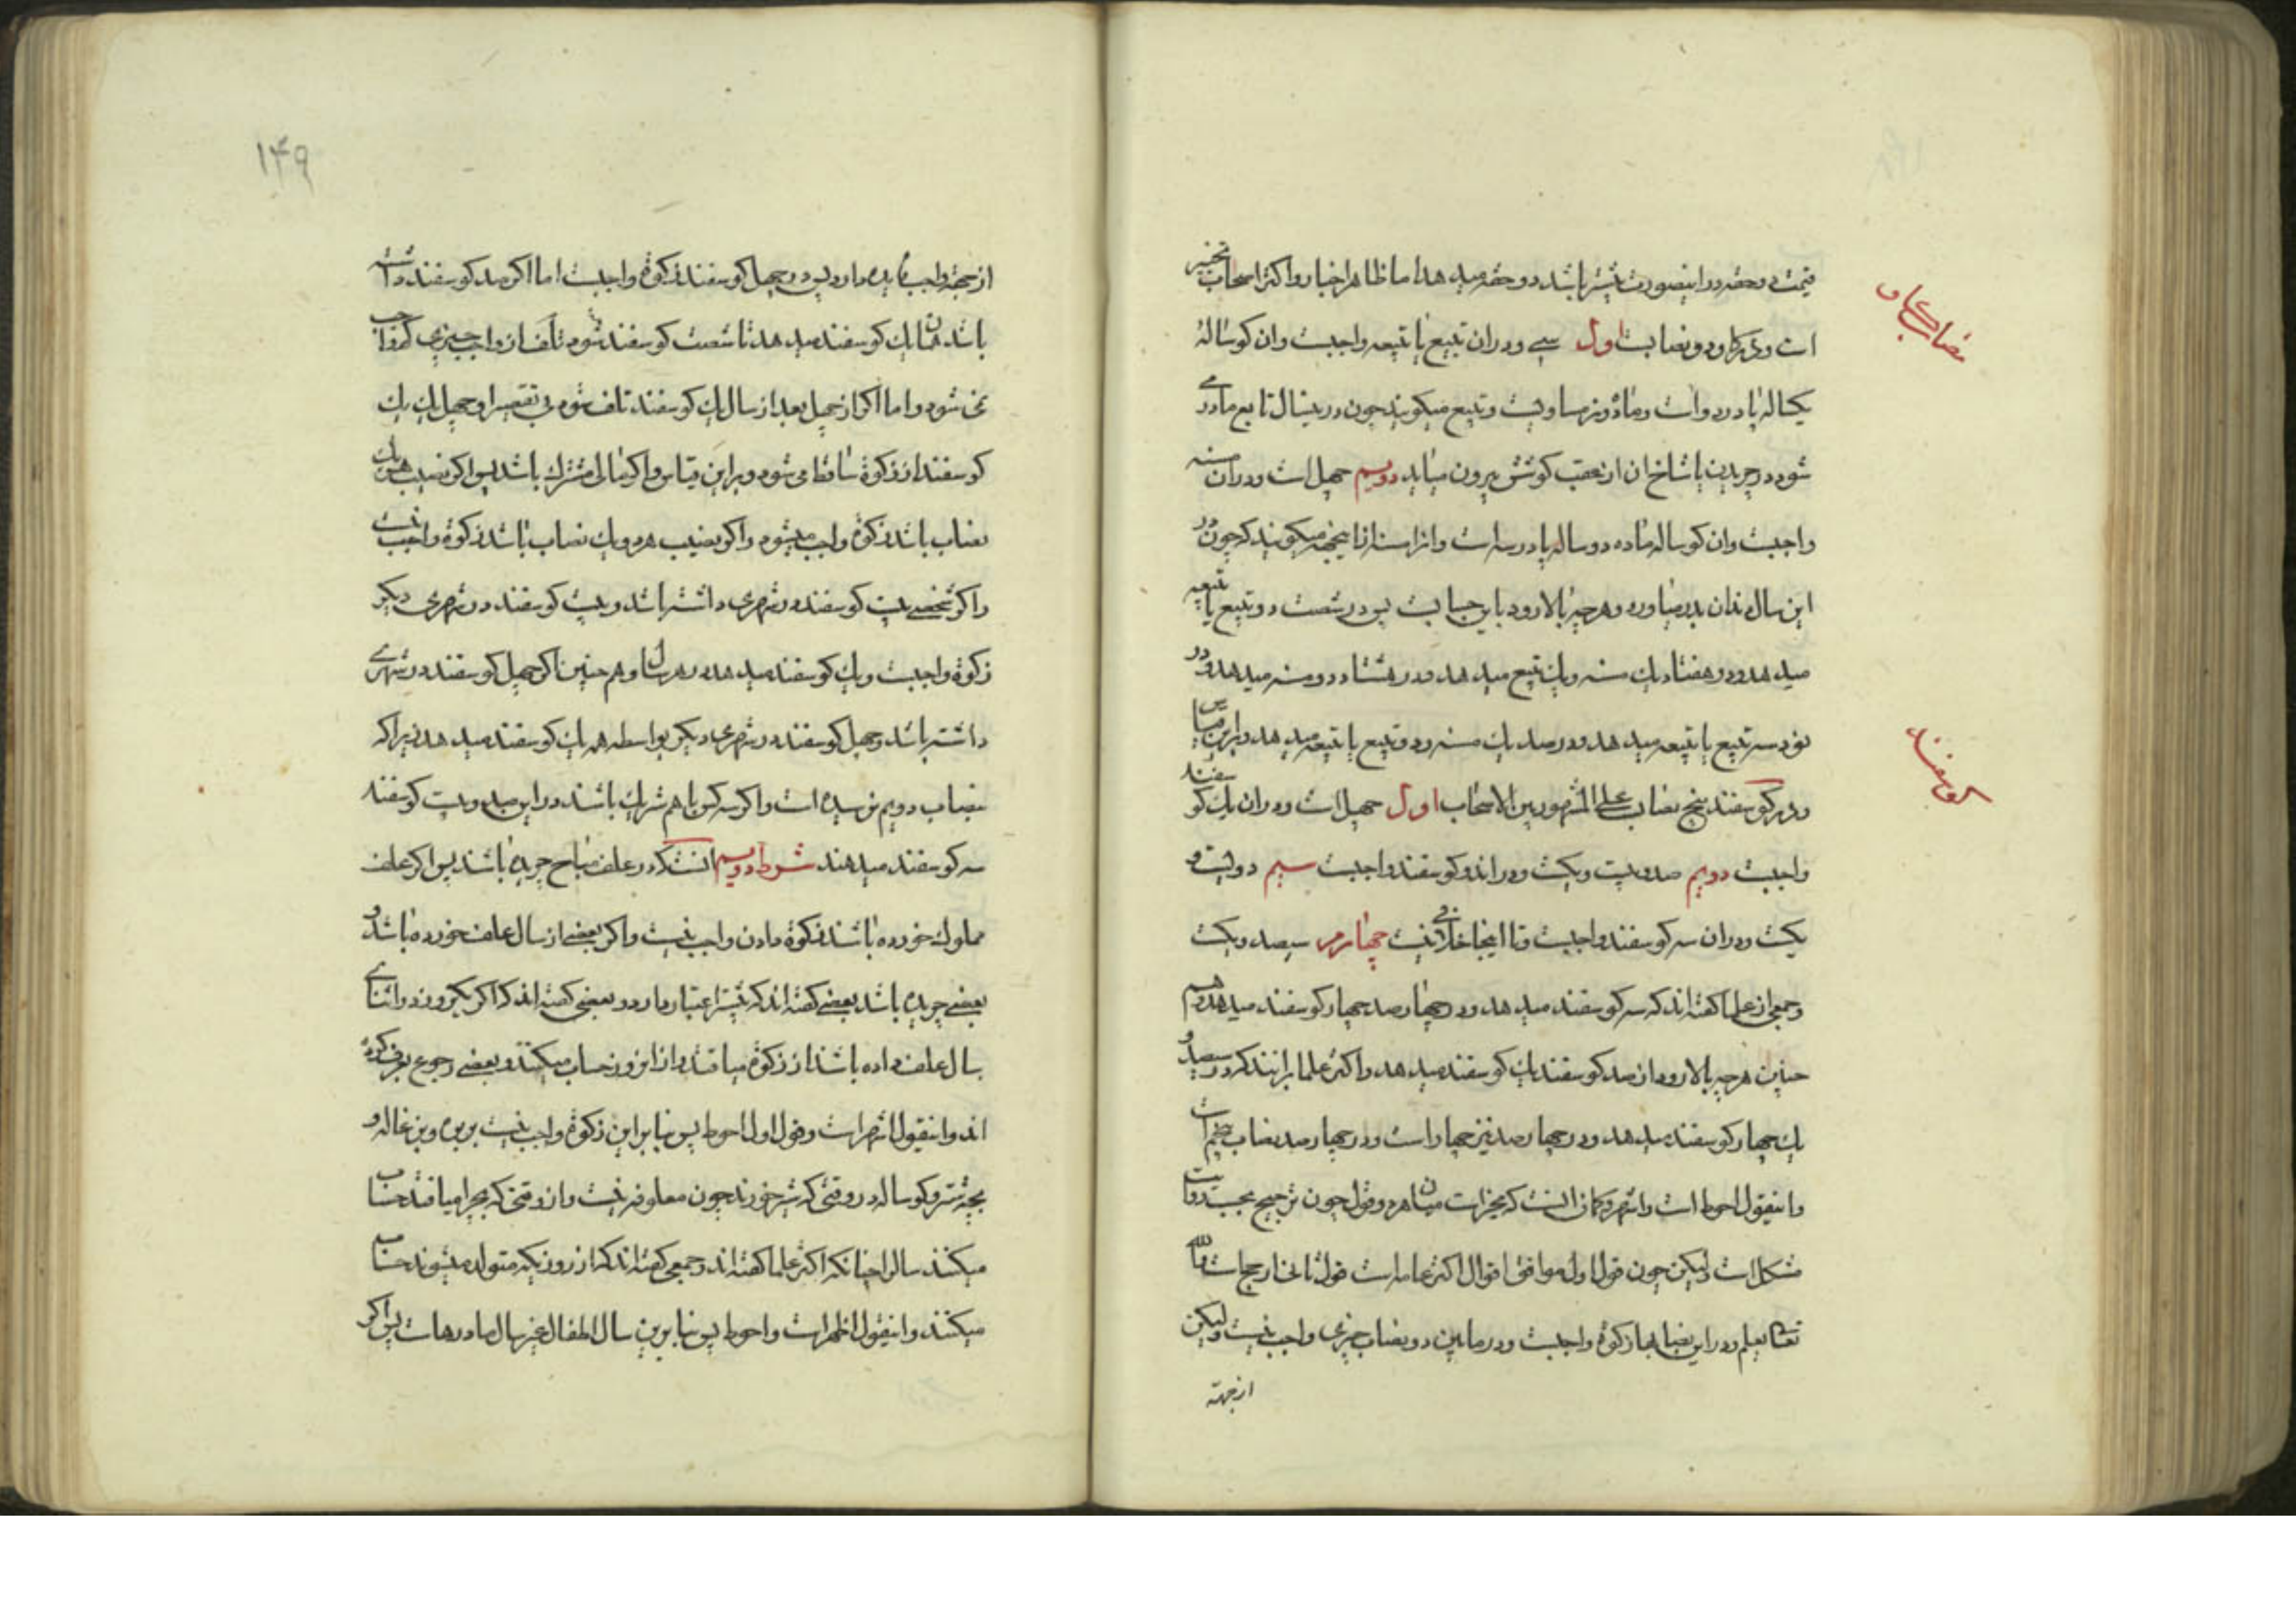 قیمت دو حقه در اینصورت بیشتر باشد دو حقه میدهد اما ظاهر اخبار و اکثر اصحاب تخییر
است و در گاو دو نصابست اول سی و در ان تبیع یا تبیعه واجبست و ان کوساله
نصاب گاو
یکساله پا در دو است و ماده و نر مساویست و تبیع میکویند چون در ینسال تابع مادر می
شود در چریدن یا شاخ ان از عقب کوشش بیرون میاید دویم چهل است و در ان مسنه
واجبست و ان کوساله ماده دو ساله پا در سه است و انرا مسنه از اینجهة میکویند که چون در
این سال دندان بدر میاورد و هر چه بالا رود باین حسابست پس در شصت دو تبیع یا تبیعه
میدهد و در هفتاد یك مسنه و یك تبیع میدهد و در هشتاد دو مسنه میدهد و در
نود سه تبیع یا تبیعه میدهد و در صد یك مسنه و دو تبیع یا تبیعه میدهد و براین قیاس
کوسفند
و در کوسفند پنج نصاب علی المشهور بین الاصحاب اول چهل است و در ان یك کوسفند
واجبست دویم صد و بیست و یکست و در ان دو کوسفند واجبست سیم دویست و
یکست و در ان سه کوسفند واجبست و تا اینجا خلافی نیست چهارم سیصد و یکست
و جمعی از علما کفته اند که سه کوسفند میدهد و در چهار صد چهار کوسفند میدهد و هم
چنین هر چه بالا رود از صد کوسفند یك کوسفند میدهد و اکثر علما برانند که در سیصد و
یك چهار کوسفند میدهد و در چهار صد نیز چهار است و در چهار صد نصاب پنجم است
و اینقول احوط است و اشهر و کمان انست که مخیر است میان هر دو قول چون ترجیح بحسب روایت
مشکل است و لیکن چون قول اول موافق اقوال اکثر عامه است قول ثانی ارجح است و الله
تعالی یعلم و در این نصابها زکوة واجبست و در مابین دو نصاب چیزی واجب نیست و لیکن
از جهة
۱۴۹
از جهة واجب فایده دارد پس در چهل کوسفند زکوة واجبست اما اکر صد کوسفند داشته
باشد همان یك کوسفند میدهد تا شصت کوسفند نشود تلف از واجب چیزی کم واجب
نمی شود و اما اکر از چهل بعد از سال یك کوسفند تلف شود بی تقصیر او چهل یك یك
کوسفند از زکوة ساقط می شود و براین قیاس و اکر مالی مشترك باشد پس اکر نصیب هر یك
نصاب باشد زکوة واجب میشود و اکر نصیب هر دو یك نصاب باشد زکوة واجب نیست
و اکر شخصی بیست کوسفند در شهری داشته باشد و بیست کوسفند در شهری دیکر
زکوة واجبست و یك کوسفند میدهد در هر سال و هم چنین اکر چهل کوسفند در شهری
داشته باشد و چهل کوسفند در شهری دیکر بواسطه همه یك کوسفند میدهد زیرا که
بنصاب دویم نرسیده است و اکر سه کس با هم شریك باشند در این صد و بیست کوسفند
سه کوسفند میدهند شرط دویم انست که در علف مباح چریده باشد پس اکر علف
مملوك خورده باشد زکوة دادن واجب نیست و اکر بعضی از سال علف خورده باشد و
بعضی چریده باشد بعضی کفته اند که بیشتر اعتبار دارد و بعضی کفته اند که اکر یکروز در اثنای
سال علف داده باشد از زکوة میافتد و از این روز حساب میکنند و بعضی رجوع بعرف کرده
اند و اینقول اشهر است و قول اول احوط پس بنا براین زکوة واجب نیست بر بره و بزغاله و
بچه شتر و کوساله در وقتی که شیر خورند چون معلوفه نیست و از وقتی که بچرا میافتد حساب
میکنند سالرا چنانکه اکثر علما کفته اند و جمعی کفته اند که از روزیکه متولد میشوند حساب
میکنند و اینقول اظهر است و احوط پس بنا برین سال اطفال غیر سال مادرهاست پس اکر